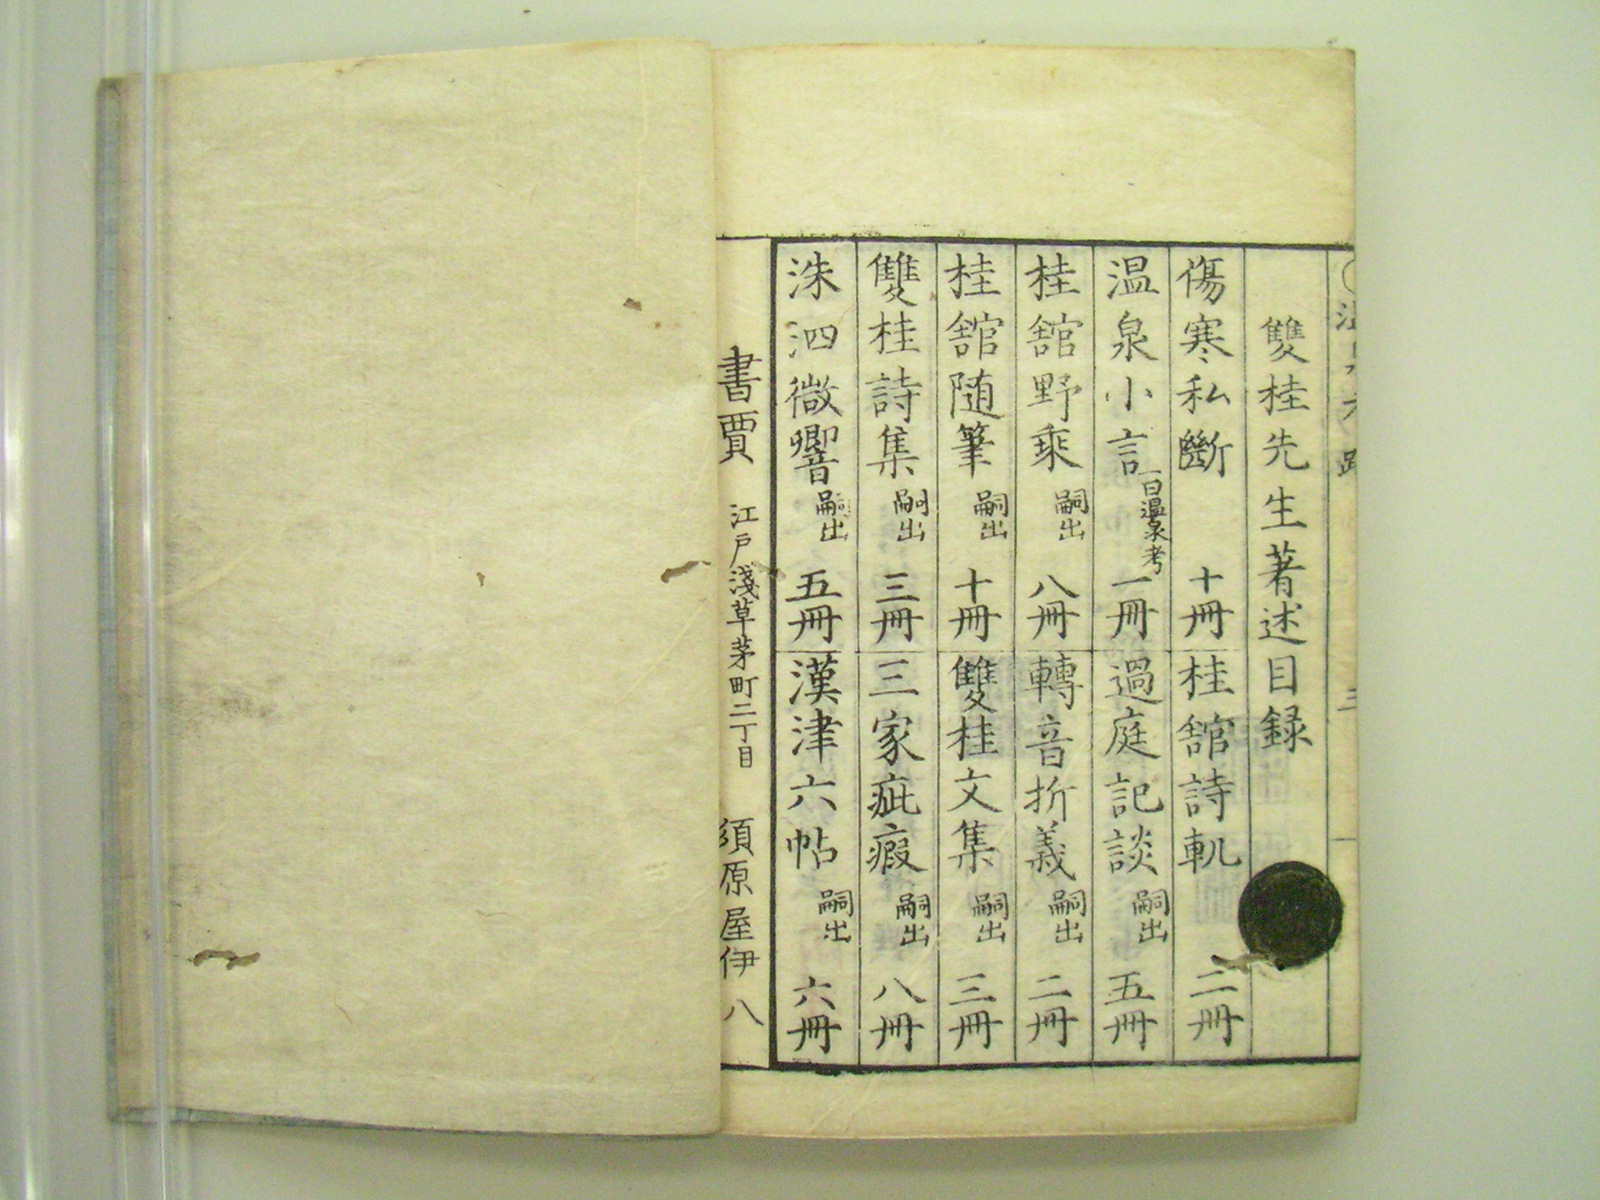 雙桂先生著述目録
傷寒私斷 十冊
桂舘詩軌 二冊
温泉小言 一曰温泉考 一冊
過庭記談 嗣出 五冊
桂舘野乘 嗣出 八冊
轉音折義 嗣出 二冊
桂舘随筆 嗣出 十冊
雙桂文集 嗣出 三冊
雙桂詩集 嗣出 三冊
三家疵瑕 嗣出 八冊
洙泗微響 嗣出 五冊
漢津六帖 嗣出 六冊
書賈 江戸淺草茅町二丁目 須原屋伊八